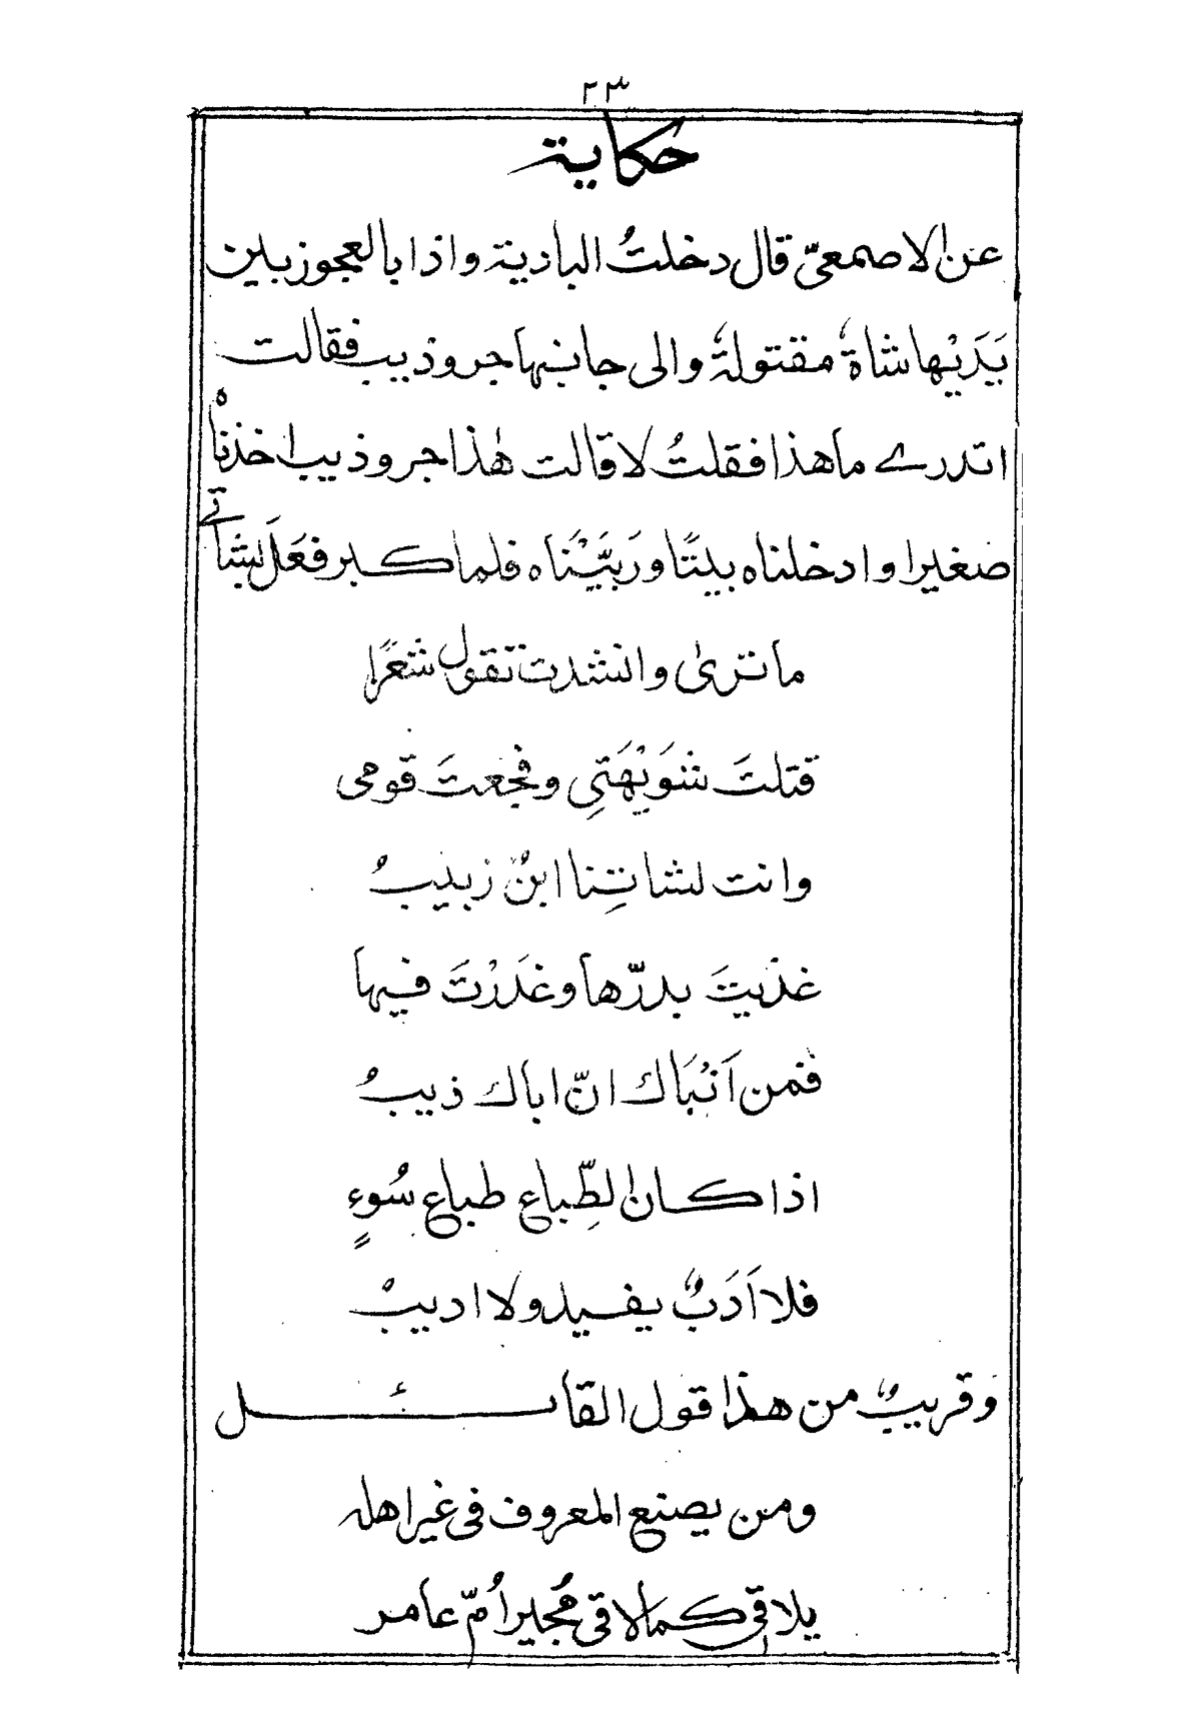 ٢٣
حكاية
عن الاصمعيّ قال دخلتُ البادية واذا بالعجوز بين
يَدَيْها شاةٌ مقتولةٌ والى جانبها جرو ذيب فقالت
اتدرے ما هذا فقلتُ لا قالت هٰذا جرو ذيب اخذناهُ
صغيرا وادخلناه بيتًا ورَبَّيْنَاه فلما كبر فعَلَ بشَاتے
ما ترىٰ وانشدت تقول شعرًا
قتلتَ شوَيْهَتِي وفجعتَ قومى
وانت لشاتِنا ابنٌ ربيبُ
غذيتَ بدرّها وغَدَرْتَ فيها
فمن اَنْبَاك انّ اباك ذيبُ
اذا كان الطِّباع طباع سُوءٍ
فلا اَدَبٌ يفيد ولا اديبُ
وقريبٌ من هذا قول القائل
ومن يصنع المعروف فى غير اهله
يلاقى كما لاقى مُجيراُمّ عامر